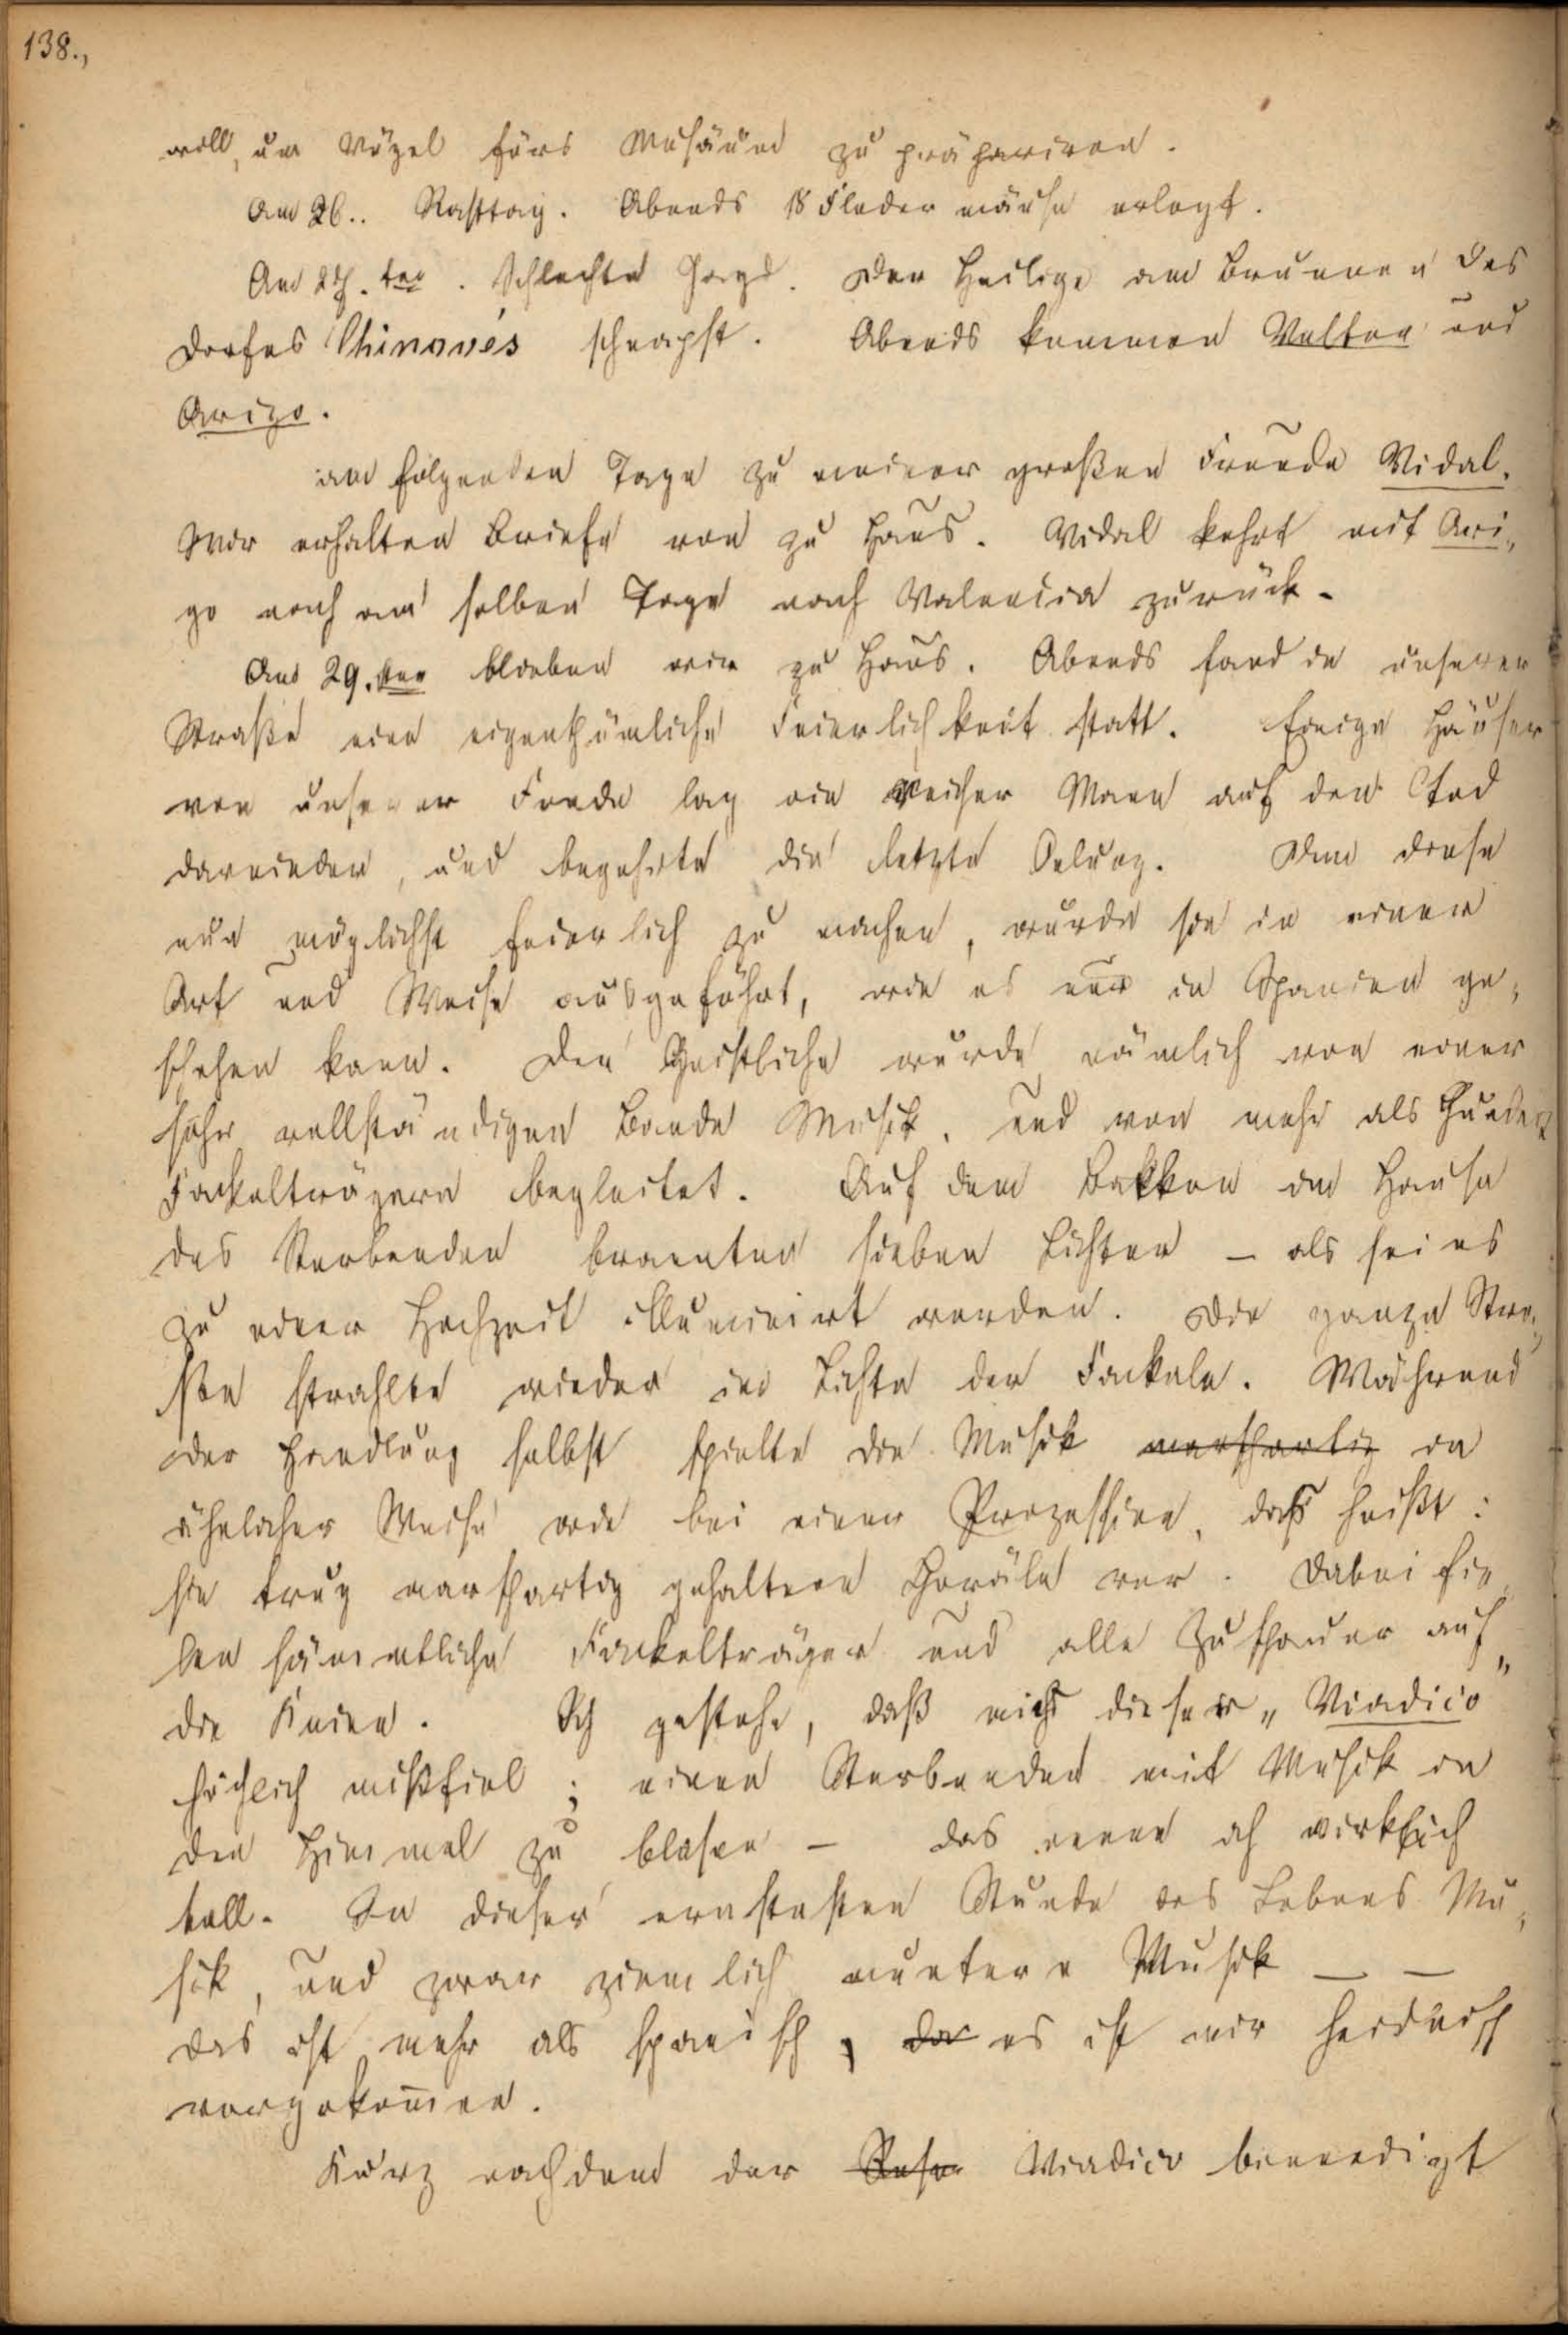 138.,
will, um Vögel fürs Musäum zu präpariren.
Am 26.. Rasttag. Abends 18 Fledermäuse erlegt.
Am 27. ten. Schlechte Jagd. Der Heilige am Brunnen des
Dorfes Chinovés schnapst. Abends kommen Walter und
Arigo.
am folgenden Tage zu meiner großen Freude Vidal.
Wir erhalten Briefe von zu Haus. Vidal kehrt mit Ari,
go noch am selben Tage nach Valencia zurück.
Am 29. ten blieben wir zu Haus. Abends fand in unserer
Straße eine eigenthümliche Feierlichkeit statt. Einige Häuser
von unserer Fonda lag ein reicher Mann auf den Tod
darnieder, und begehrte die letzte Oelung. Um diese
nun möglichst feierlich zu machen, wurde sie in einer
Art und Weise ausgeführt, wie es nur in Spanien ge,
schehen kann. Der Geistliche wurde nämlich von einer
sehr vollständigen Bande Musik, und von mehr als hundert
Fackelträgern begleitet. Auf dem Balkon im Hause
des Sterbenden brannten sieben Lichter – als sei es
zu einer Hochzeit illuminirt worden. Die ganze Stra,
ße strahlte wieder im Lichte der Fackeln. Während
der Handlung selbst spielte die Musik marschartig in
ähnlicher Weise wie bei einer Prozession, daß heißt:
sie trug marschartig gehaltene Choräle vor. Dabei fie,
len sämmtliche Fackelträger und alle Zuschauer auf
die Kniee. Ich gestehe, daß mich dieser „Viadico"
höchlich mißfiel; einen Sterbenden mit Musik in
den Himmel zu blasen – das nenne ich wirklich
toll. In dieser ernstesten Stunde des Lebens Mu,
sik, und zwar ziemlich muntere Musik – –
das ist mehr als spanisch, da es ist mir heidnisch
vorgekommen.
Kurz nachdem der Viadico beendigt